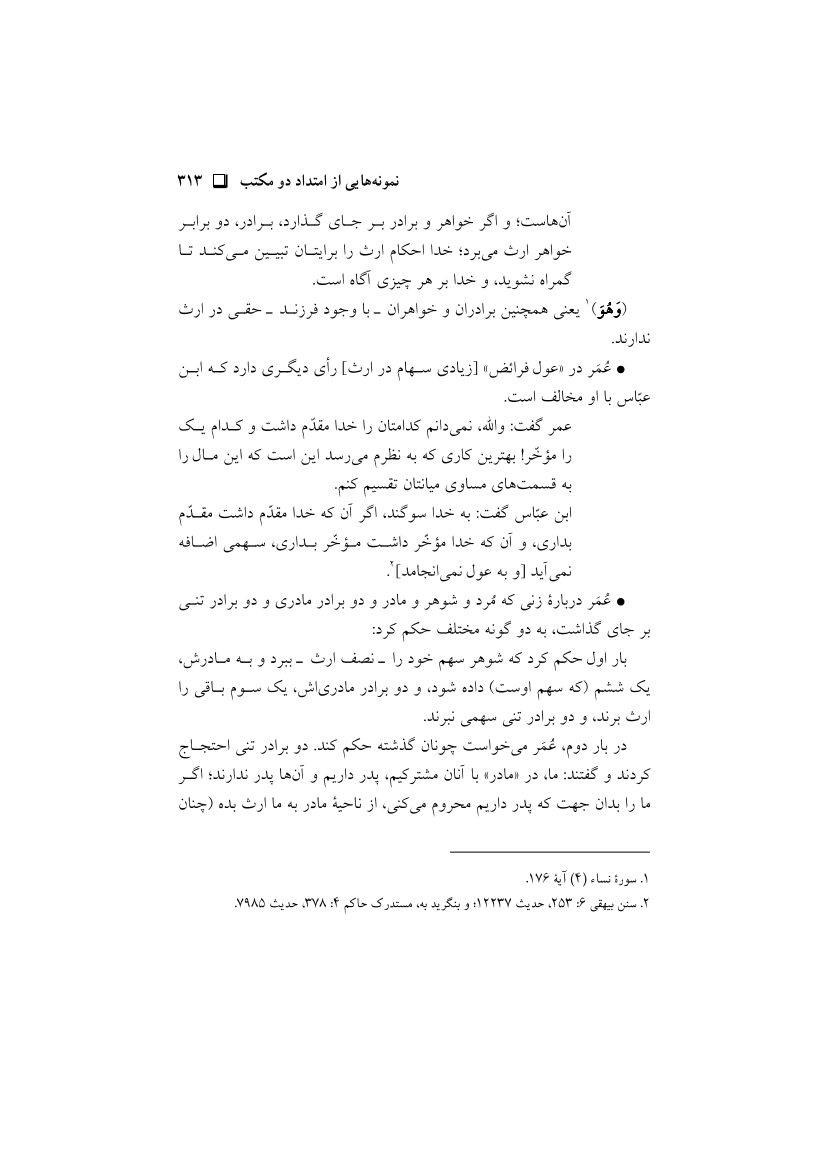 نمونه‌هایی از امتداد دو مکتب ❏ ۳۱۳
آن‌هاست؛ و اگر خواهر و برادر بر جای گذارد، برادر، دو برابر
خواهر ارث می‌برد؛ خدا احکام ارث را برایتان تبیین می‌کند تا
گمراه نشوید، و خدا بر هر چیزی آگاه است.
(وَهُوَ)۱ یعنی همچنین برادران و خواهران ـ با وجود فرزند ـ حقی در ارث
ندارند.
● عُمَر در «عول فرائض» [زیادی سهام در ارث] رأی دیگری دارد که ابن
عبّاس با او مخالف است.
عمر گفت: والله، نمی‌دانم کدامتان را خدا مقدّم داشت و کدام یک
را مؤخّر! بهترین کاری که به نظرم می‌رسد این است که این مال را
به قسمت‌های مساوی میانتان تقسیم کنم.
ابن عبّاس گفت: به خدا سوگند، اگر آن که خدا مقدّم داشت مقدّم
بداری، و آن که خدا مؤخّر داشت مؤخّر بداری، سهمی اضافه
نمی‌آید [و به عول نمی‌انجامد]۲.
● عُمَر دربارهٔ زنی که مُرد و شوهر و مادر و دو برادر مادری و دو برادر تنی
بر جای گذاشت، به دو گونه مختلف حکم کرد:
بار اول حکم کرد که شوهر سهم خود را ـ نصف ارث ـ ببرد و به مادرش،
یک ششم (که سهم اوست) داده شود، و دو برادر مادری‌اش، یک سوم باقی را
ارث برند، و دو برادر تنی سهمی نبرند.
در بار دوم، عُمَر می‌خواست چونان گذشته حکم کند. دو برادر تنی احتجاج
کردند و گفتند: ما، در «مادر» با آنان مشترکیم، پدر داریم و آن‌ها پدر ندارند؛ اگر
ما را بدان جهت که پدر داریم محروم می‌کنی، از ناحیهٔ مادر به ما ارث بده (چنان
۱. سورهٔ نساء (۴) آیهٔ ۱۷۶.
۲. سنن بیهقی ۶: ۲۵۳، حدیث ۱۲۲۳۷؛ و بنگرید به، مستدرک حاکم ۴: ۳۷۸، حدیث ۷۹۸۵.